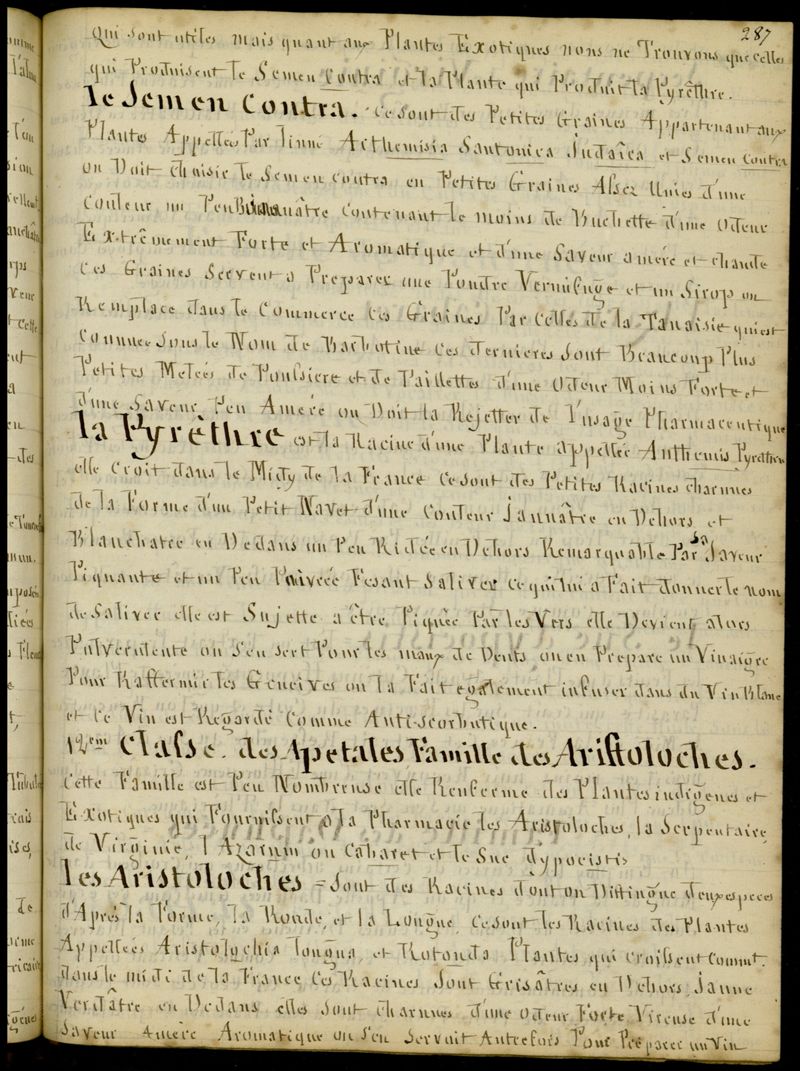 287
Qui sont utiles mais quant aux Plantes Exotiques nons ne Trouvons que celles
qui Produisent le Semen Contra et la Plante qui Produit la Pyrêthre.
le Semen Contra. Ce sont des Petites Graines Appartenant aux
Plantes Appellées Par linne Arthemisia Santonica Judaïca et Semen Contra
on Doit Choisir le Semen Contra en Petites Graines Assez Unies d'une
Couleur un Peu contenant le moins de Buchette d'une Odeur
Extrêmement Forte et Aromatique et d'une Saveur amére et chaude
Ces Graines Servent a Preparer une Poudre Vermifuge et un Sirop on
Remplace dans le Commerce Ces Graines Par Celles de la Tanaisie qui est
Connuee sous le Nom de Barbotine Ces dernieres sont Beaucoup Plus
Petites Melées de Poussiere et de Paillettes d'une Odeur Moins Forte et
d'une Saveur Peu Amére on Doit la Rejetter de l'usage Pharmaceutique
la Pyrèthre est la Racine d'une Plante appellée Anthemis Pyrethrum
elle croit dans le Midy de la France ce sont des Petites Racines charnues
de la Forme d'un Petit Navet d'une Couleur Jaunâtre en Dehors et
Blanchatre en Dedans un Peu Ridée en Dehors Remarquable Par sa Saveur
Piquante et un Peu Poivrée Fesant Saliver ce qui lui a Fait donner le nom
de Salivee elle est Sujette a être Piquée Par les Vers elle Devient alors
Pulverulente on s'en sert Pour les maux de Dents on en Prepare un Vinaigre
Pour Raffermir les Gencives on la Fait egalement infuser dans du Vin Blanc
et ce Vin est Regardé Comme Anti-scorbutique.
12eme Classe. des Apetales Famille des Aristoloches.
Cette Famille est Peu Nombreuse elle Renferme des Plantes indigènes et
Exotiques qui Fournissent a la Pharmacie les Aristoloches, la Serpentaire
de Virginie, l'Azarum ou Cabaret et le Suc d'ypocistis
les Aristoloches = Sont des Racines dont on Distingue deux especes
d'Après la Forme, la Ronde, et la Longue, ce sont les Racines des Plantes
Appellées Aristolochia longua, et Rotonda Plantes qui croissent Commut.
dans le midi de la France Ces Racines sont Grisâtres en Dehors Jaune
Verdâtre en Dedans elles sont charnues d'une odeur Forte Vireuse d'une
Saveur Amère Aromatique on s'en servait Autrefois Pour Préparer un Vin